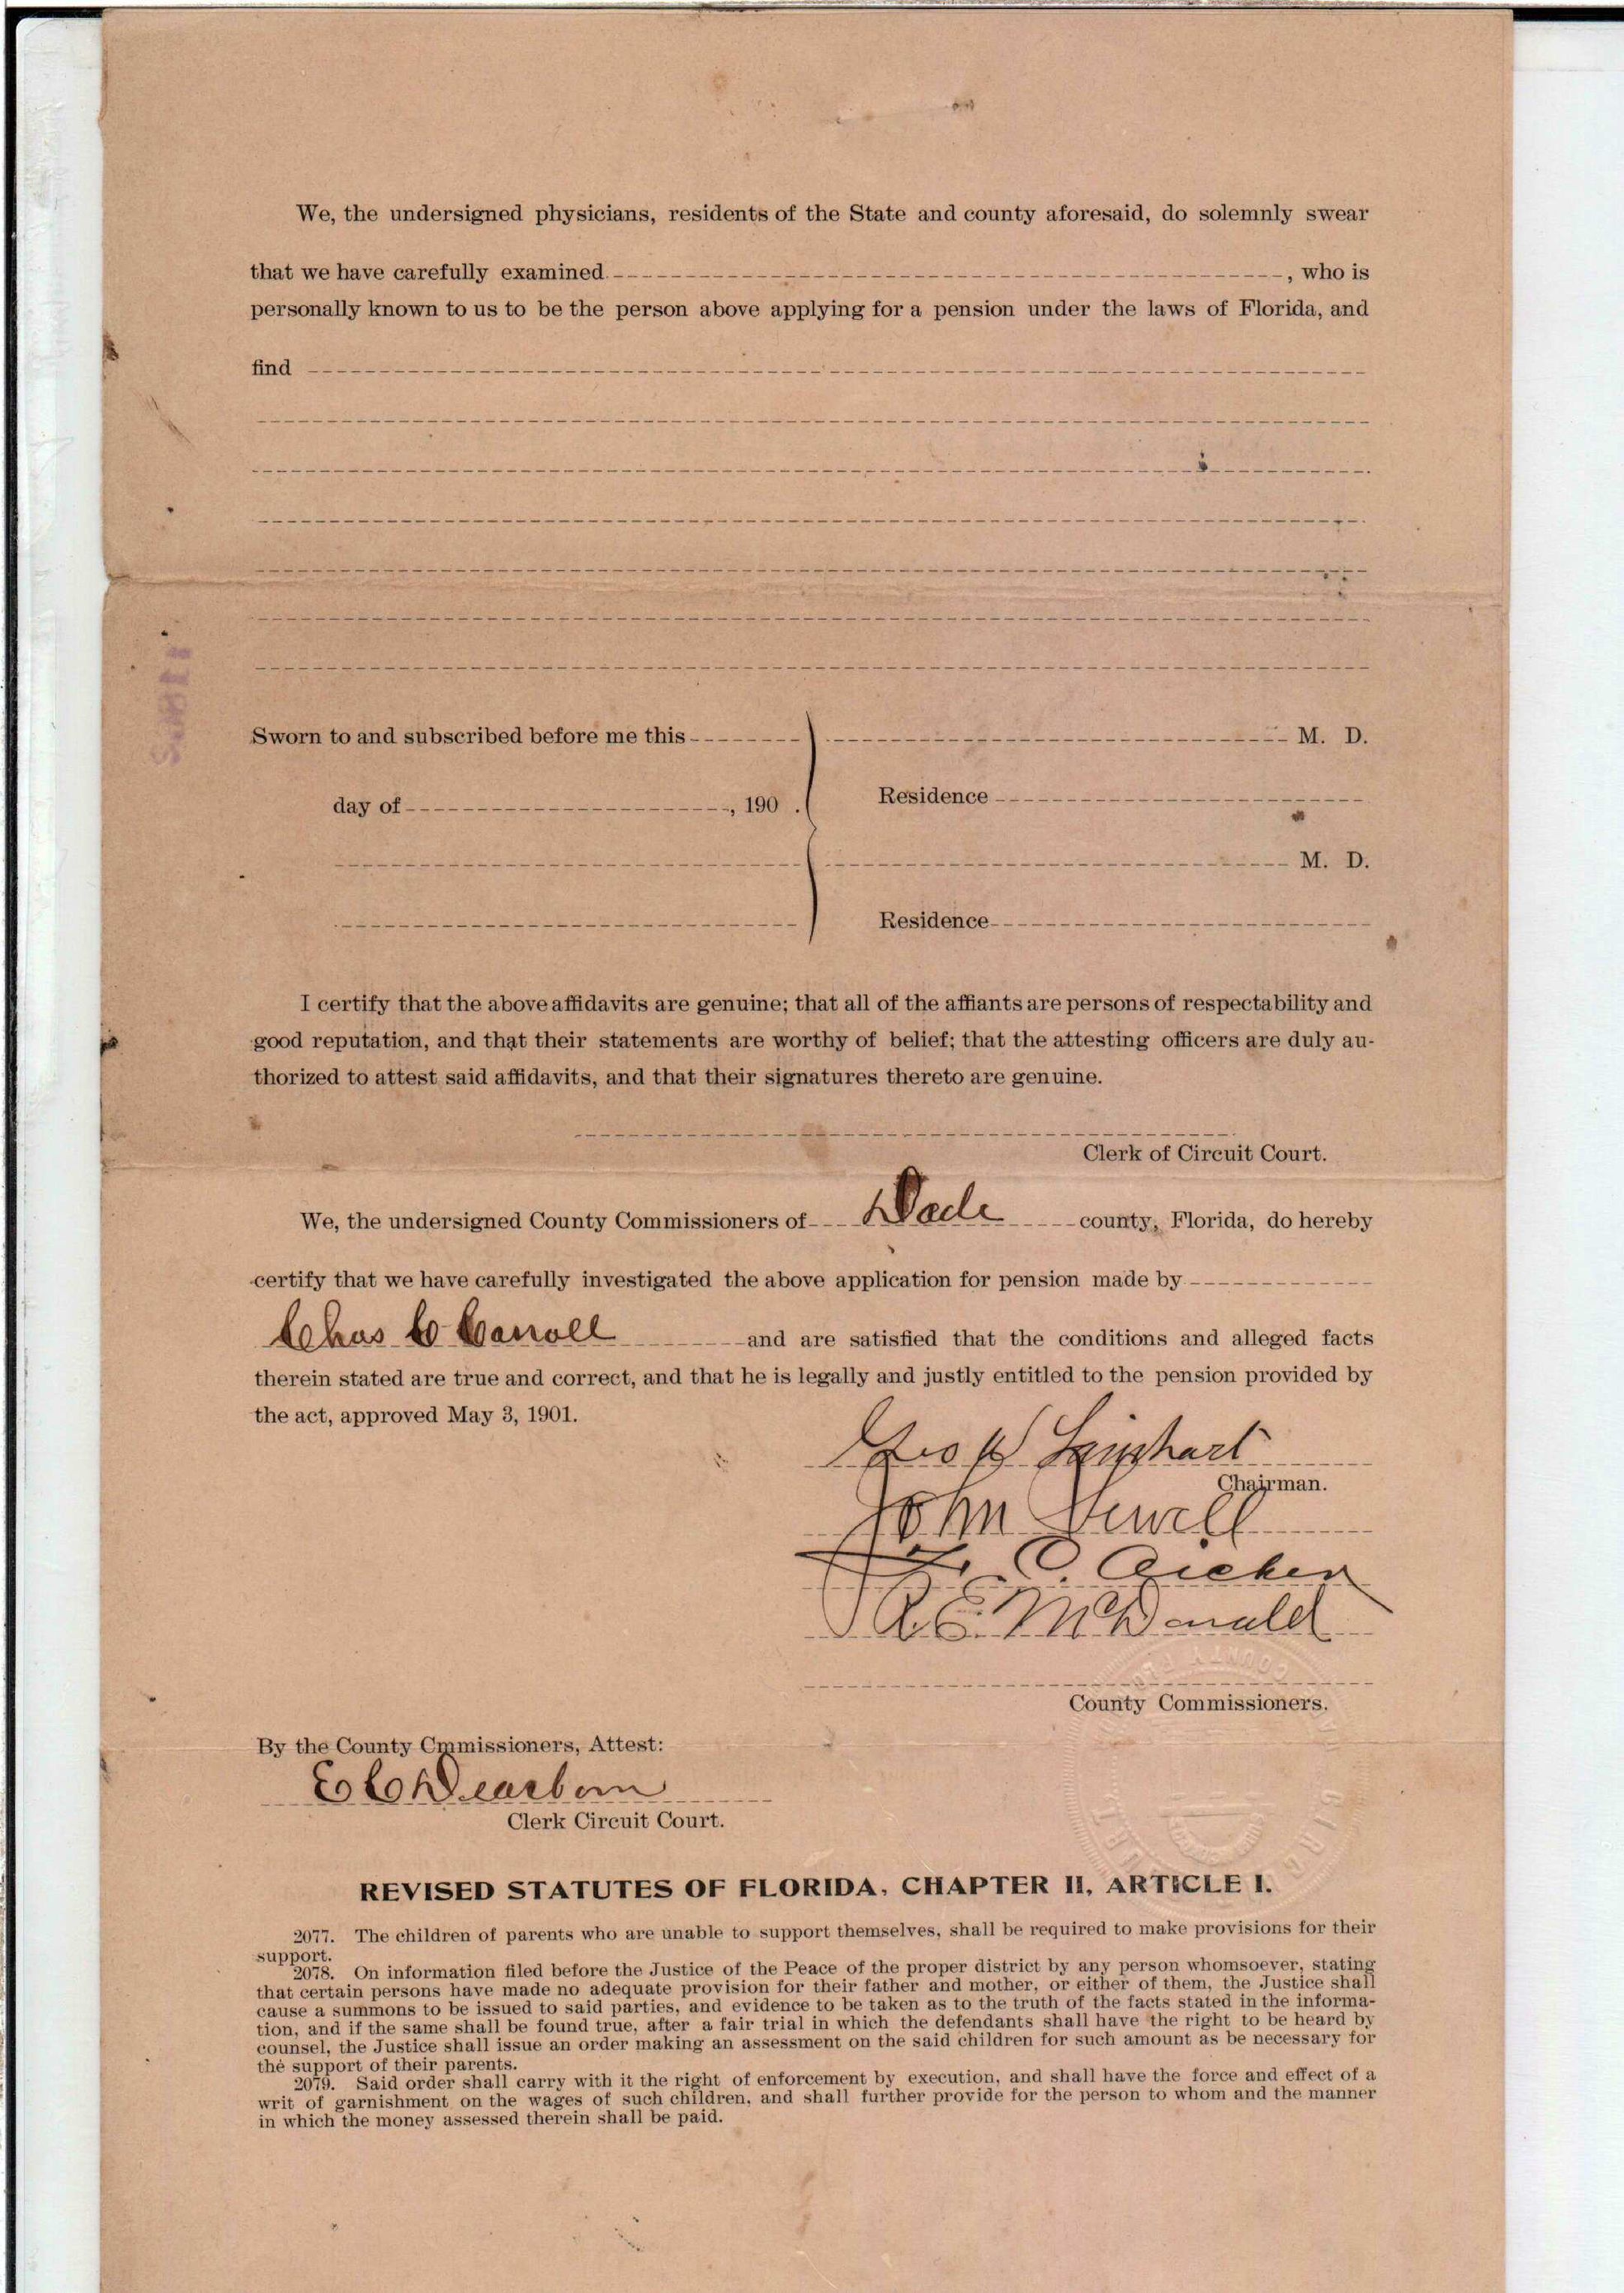 We, the undersigned physicians, residents of the State and county aforesaid, do solemnly swear
that we have carefully examined, who is
personally known to us to be the person above applying for a pension under the laws of Florida, and
find
Sworn to and subscribed before me this M. D.
day of, 190 . Residence
M. D.
Residence
I certify that the above affidavits are genuine; that all of the affiants are persons of respectability and
good reputation, and that their statements are worthy of belief; that the attesting officers are duly au-
thorized to attest said affidavits, and that their signatures thereto are genuine.
Clerk of Circuit Court.
We, the undersigned County Commissioners of Dade county, Florida, do hereby
certify that we have carefully investigated the above application for pension made by
Chas C Carroll and are satisfied that the conditions and alleged facts
therein stated are true and correct, and that he is legally and justly entitled to the pension provided by
the act, approved May 3, 1901.
Geo W
Chairman.
John Sewell
C.
R. E. McDonald
County Commissioners.
By the County Cmmissioners, Attest:
E C Dearborn
Clerk Circuit Court.
REVISED STATUTES OF FLORIDA, CHAPTER II, ARTICLE I.
2077. The children of parents who are unable to support themselves, shall be required to make provisions for their
support.
2078. On information filed before the Justice of the Peace of the proper district by any person whomsoever, stating
that certain persons have made no adequate provision for their father and mother, or either of them, the Justice shall
cause a summons to be issued to said parties, and evidence to be taken as to the truth of the facts stated in the informa-
tion, and if the same shall be found true, after a fair trial in which the defendants shall have the right to be heard by
counsel, the Justice shall issue an order making an assessment on the said children for such amount as be necessary for
the support of their parents.
2079. Said order shall carry with it the right of enforcement by execution, and shall have the force and effect of a
writ of garnishment on the wages of such children, and shall further provide for the person to whom and the manner
in which the money assessed therein shall be paid.